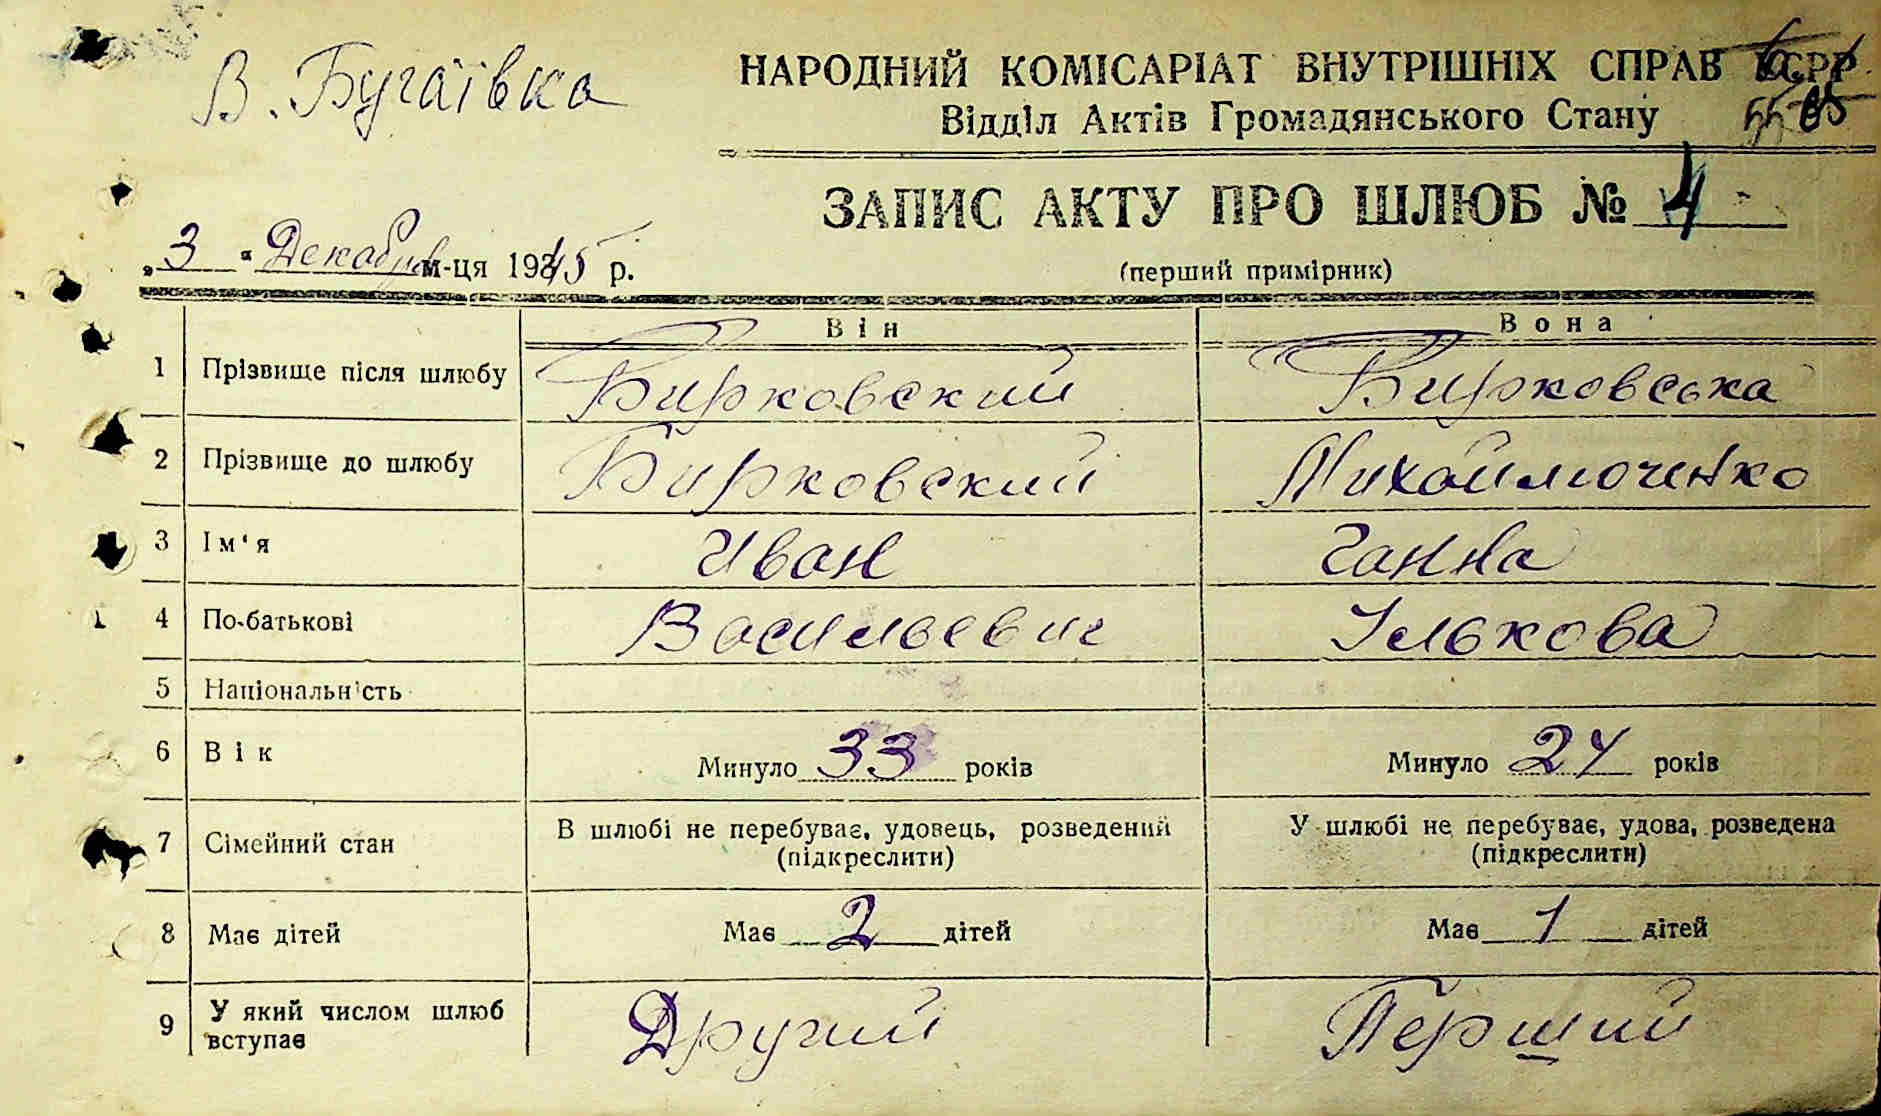 В. Бугаївка
НАРОДНИЙ КОМІСАРІАТ ВНУТРІШНІХ СПРАВ УСРР
Відділ Актів Громадянського Стану
ЗАПИС АКТУ ПРО ШЛЮБ № 4
„3“ Декабря м-ця 1945 р.
(перший примірник)
Він Вона
1 Прізвище після шлюбу Бирковский Бирковська
2 Прізвище до шлюбу Бирковский Михайлюченко
3 Ім'я Иван Ганна
4 По-батькові Васильевич Ількова
5 Національність
6 Вік Минуло 33 років Минуло 24 років
7 Сімейний стан В шлюбі не перебуває, удовець, розведений У шлюбі не перебуває, удова, розведена
(підкреслити) (підкреслити)
8 Має дітей Має 2 дітей Має 1 дітей
9 У який числом шлюб вступає Другий Перший